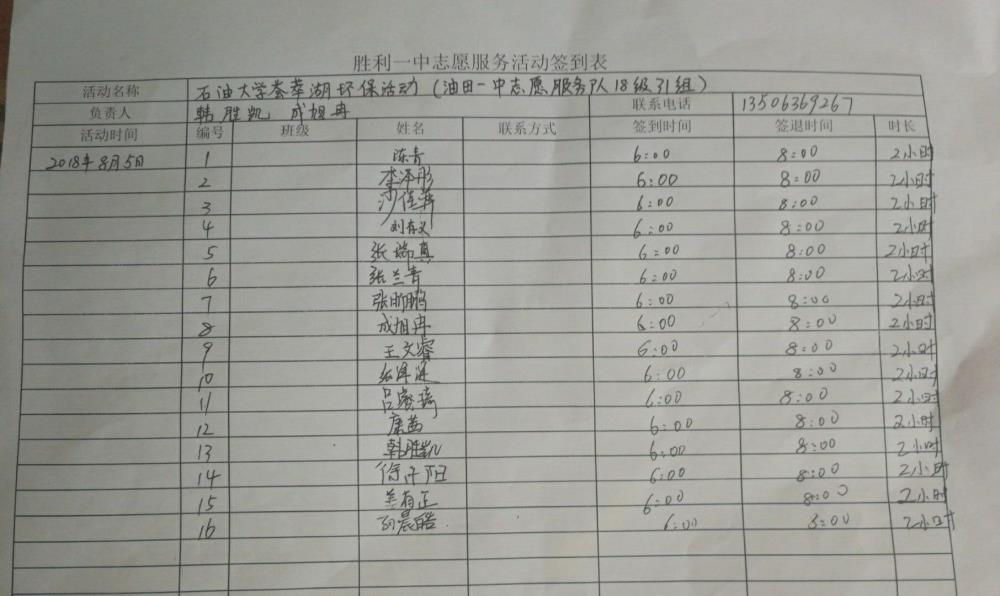 胜利一中志愿服务活动签到表
活动名称 石油大学荟萃湖环保活动（油田一中志愿服务队18级31组）
负责人 韩胜凯 成旭冉 联系电话 13506369267
活动时间 编号 班级 姓名 联系方式 签到时间 签退时间 时长
2018年8月5日 1 陈青 6:00 8:00 2小时
2 李泽彤 6:00 8:00 2小时
3 沙佳 6:00 8:00 2小时
4 刘存义 6:00 8:00 2小时
5 张瑞真 6:00 8:00 2小时
6 张兰青 6:00 8:00 2小时
7 张昕鹏 6:00 8:00 2小时
8 成旭冉 6:00 8:00 2小时
9 王文睿 6:00 8:00 2小时
10 张 6:00 8:00 2小时
11 吕睿琦 6:00 8:00 2小时
12 康茜 6:00 8:00 2小时
13 韩胜凯 6:00 8:00 2小时
14 徐 阳 6:00 8:00 2小时
15 有正 6:00 8:00 2小时
16 晨皓 6:00 8:00 2小时